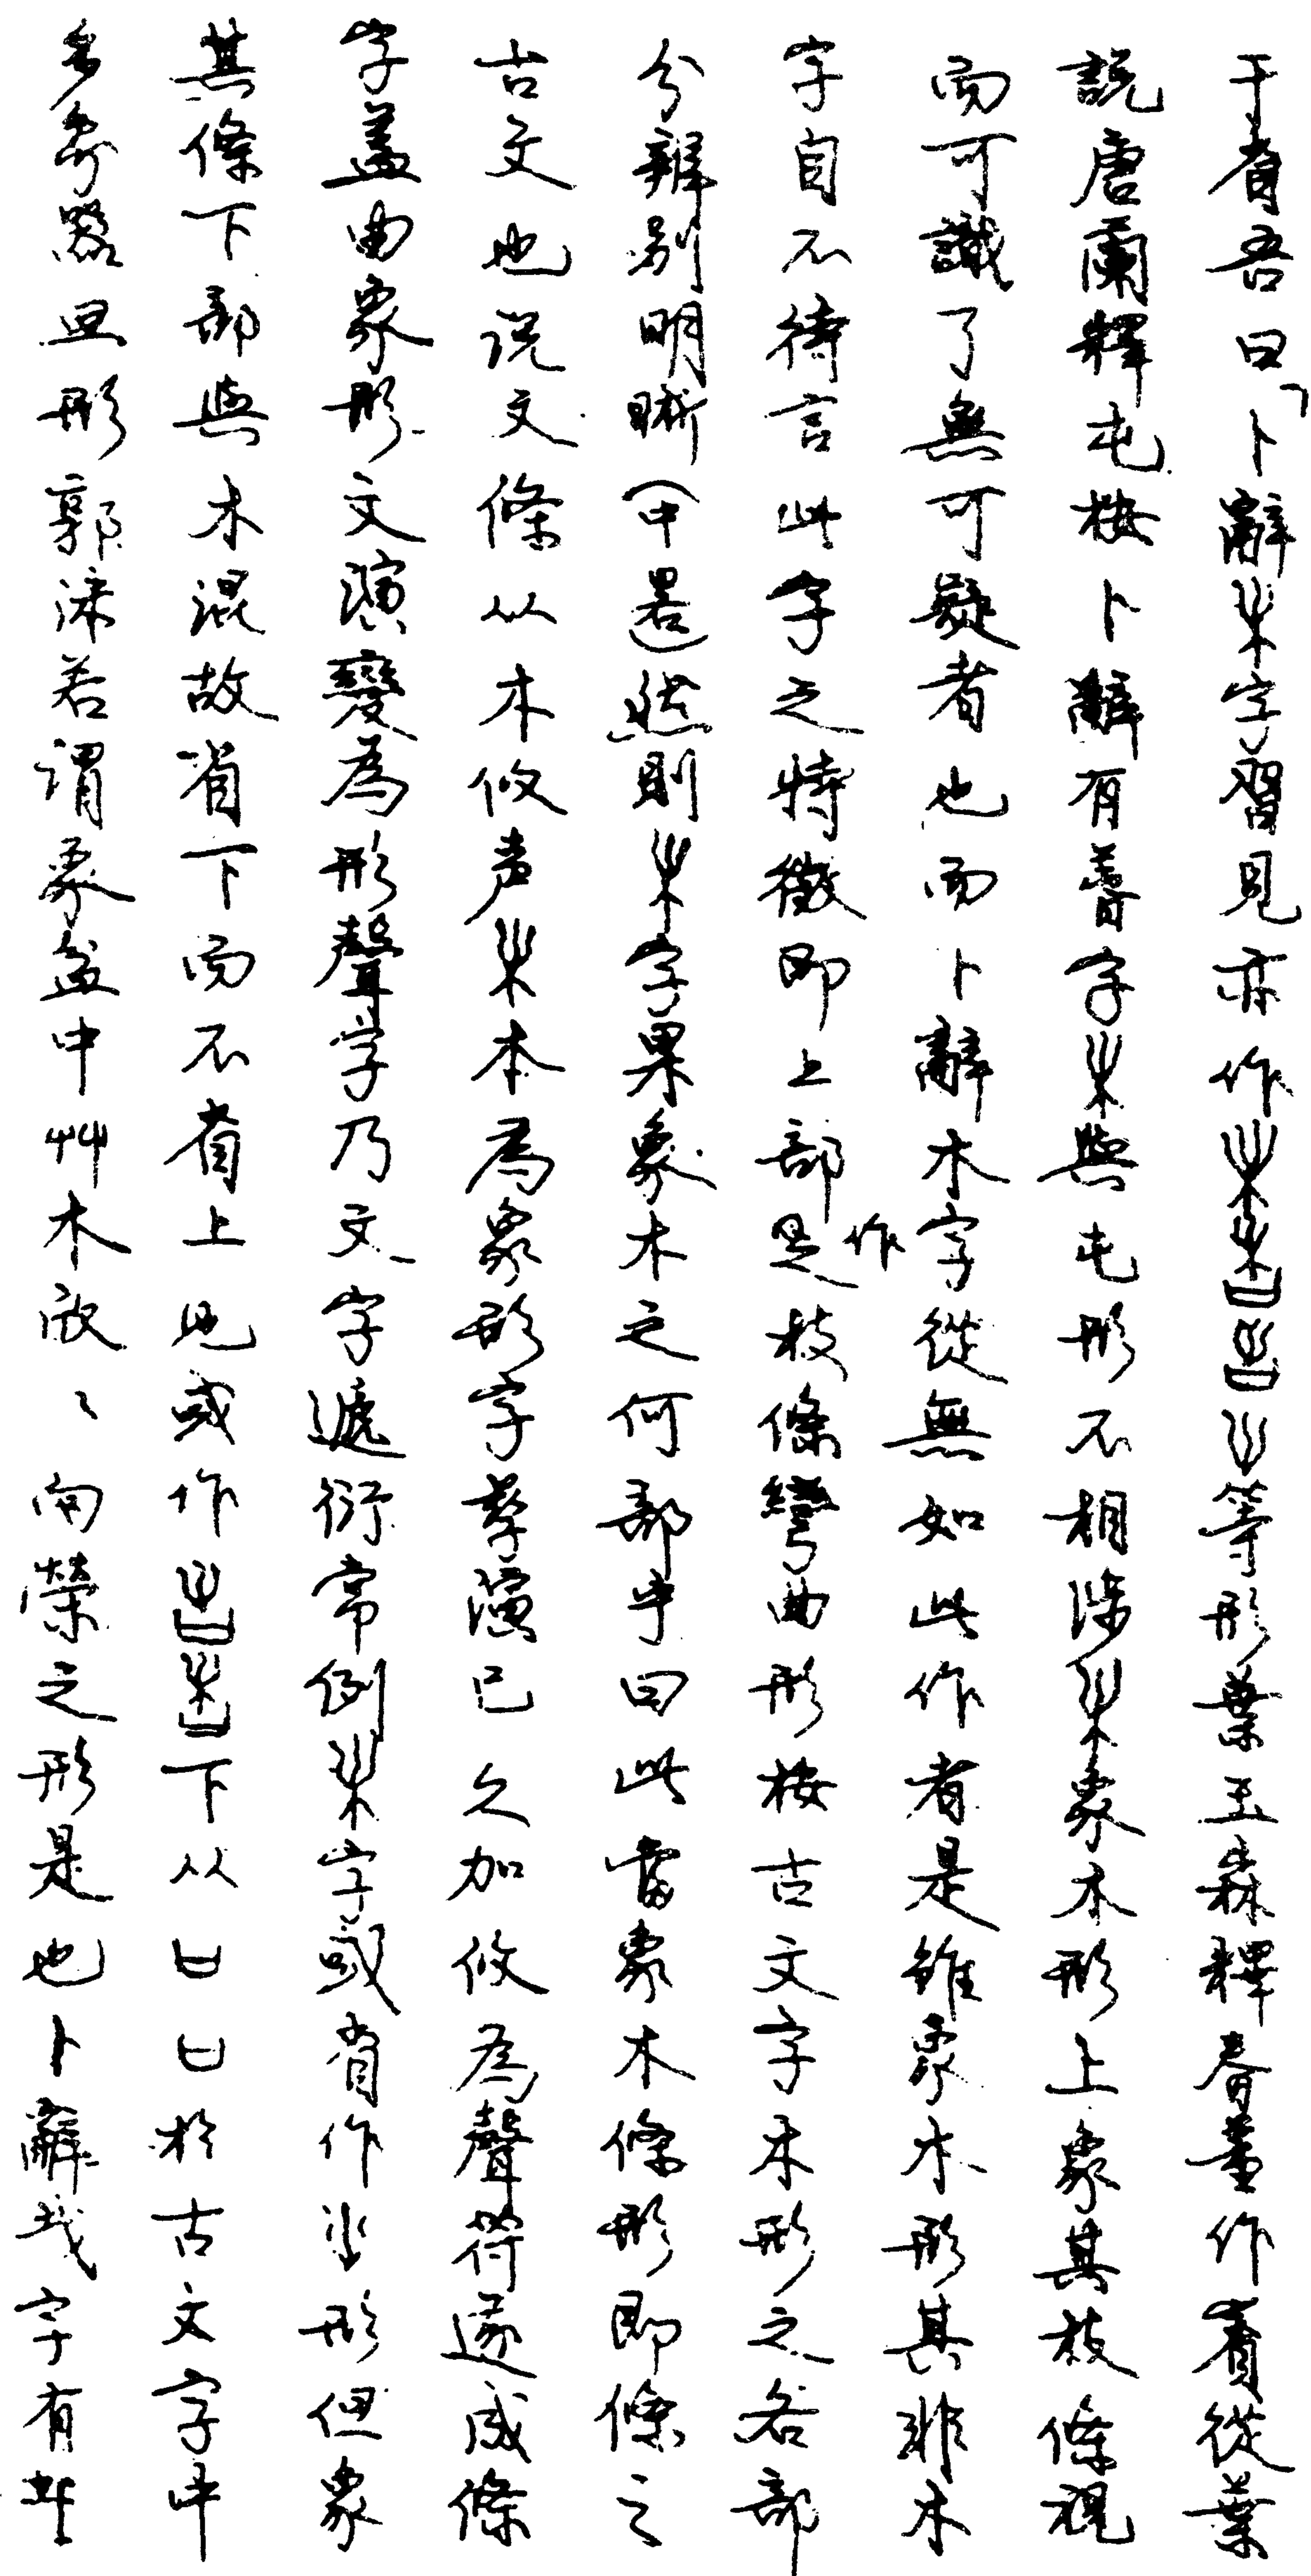 于省吾曰「卜辭字習見亦作等形葉玉森釋春董作賓從葉
說唐蘭釋屯按卜辭有萅字與屯形不相涉象木形上象其枝條視
而可識了無可疑者也而卜辭木字從無如此作者是雖象木形其非木
字自不待言此字之特徵即上部是作枝條彎曲形按古文字木形之各部
分辨別明晰(中畧)然則字果象木之何部乎曰此當象木條形即條之
古文也说文條从木攸声本為象形字孳演已久加攸為聲符遂成條
字蓋由象形文演變為形聲字乃文字遞衍常例字或省作形但象
其條下部與木混故省下而不省上也或作下从凵凵於古文字中
多象器皿形郭沫若謂象盆中艸木欣〻向榮之形是也卜辭字有